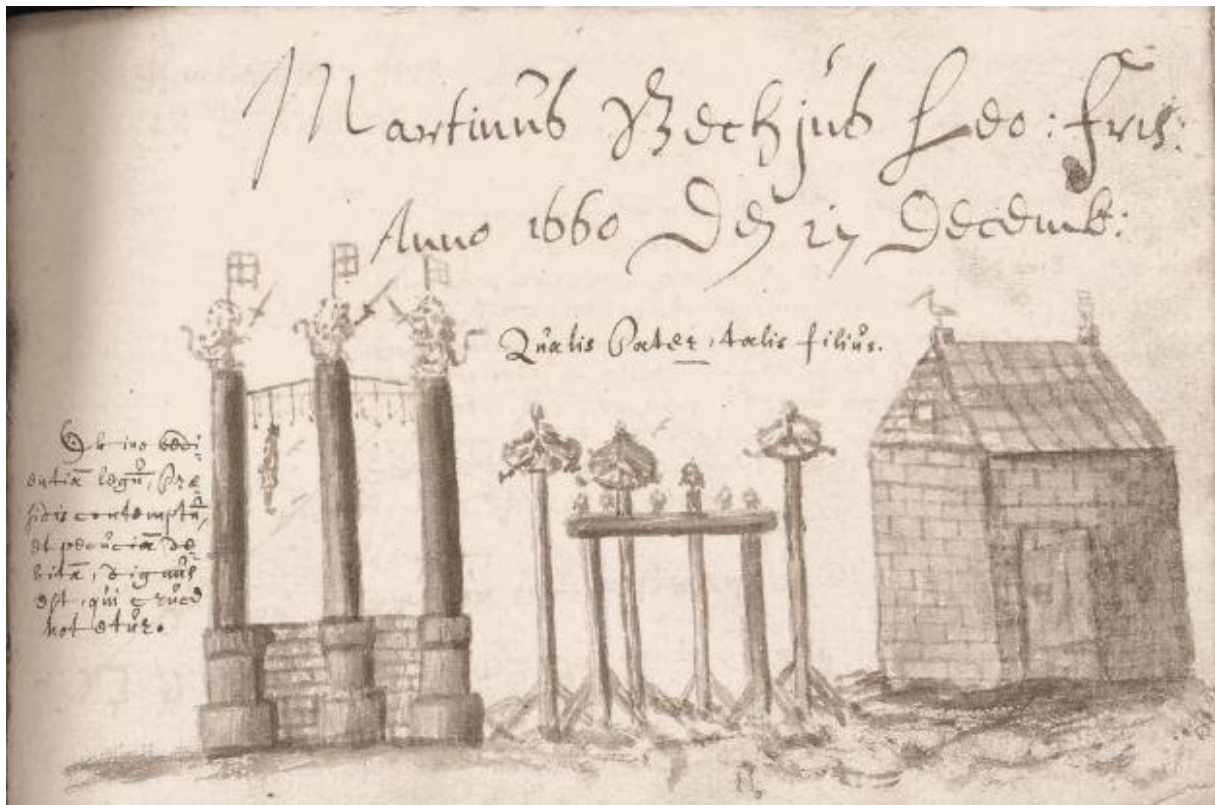 Martinus Bechius Leo: Fris:
Anno 1660 Den 27 Decemb:
Qualis Pater, talis filius.
Ob ino bedi-
entiā legū, Præ
sidis contemptū,
et pecuniā de
bitā, dignus
est, qui cruce
notetur.